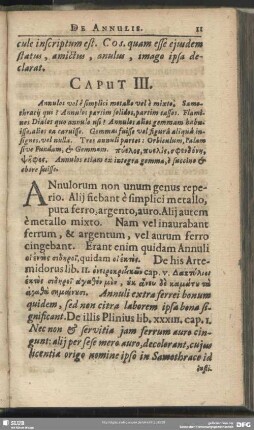 DE ANNULIS. 11
cule inscriptum est. Cos. quam esse ejusdem
status, amictus, anulus, imago ipsa de-
clarat.
CAPUT III.
Annulos vel è simplici metallo vel è mixto. Samo-
thracij qui? Annales partim solidos, partim cassos. Flami-
nes Diales quo annulo usi? Annulos alios gemmam habu-
isse, alios ea caruisse. Gemmas fuisse vel figurâ aliquâ in-
signes, vel nullâ. Tres annuli partes: Orbiculum, Palam
sive Fundam, & Gemmam.
ψῆφος. Annulos etiam ex integra gemma, è succino &
ebore fuisse.
ANnulorum non unum genus repe-
rio. Alij fiebant è simplici metallo,
puta ferro, argento, auro. Alij autem
è metallo mixto. Nam vel inaurabant
ferrum, & argentum, vel aurum ferro
cingebant. Erant enim quidam Annuli
De his Arte-
midorus lib. II. cap. V.
Annuli extra ferrei bonum
quidem, sed non citra laborem ipsa bona si-
gnificant. De illis Plinius lib. XXXIII. cap. I.
Nec non & servitia jam ferrum auro cin-
gunt: alij per sese mero auro, decolorant, cujus
licentiæ origo nomine ipso in Samothrace id
insti-
SLUB
DFG